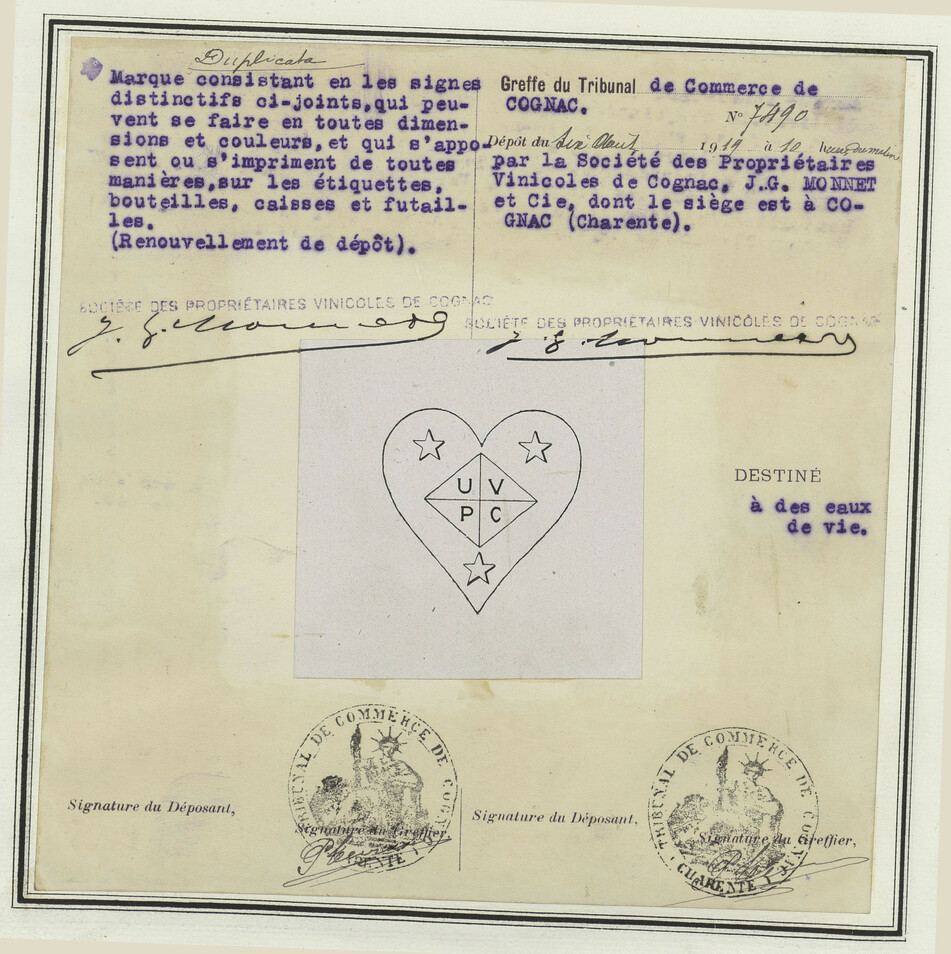 Duplicata
Marque consistant en les signes
distinctifs ci-joints,qui peu-
vent se faire en toutes dimen-
sions et couleurs,et qui s'appo-
sent ou s'impriment de toutes
manières,sur les étiquettes,
bouteilles, caisses et futail-
les.
(Renouvellement de dépôt).
SOCIÉTÉ DES PROPRIÉTAIRES VINICOLES DE COGNAC
J. G. Monnet
Greffe du Tribunal de Commerce de
COGNAC.
N° 7490
Dépôt du Six Août 1919 à 10 heures du matin
par la Société des Propriétaires
Vinicoles de Cognac, J.G. MONNET
et Cie, dont le siège est à CO-
GNAC (Charente).
SOCIÉTÉ DES PROPRIÉTAIRES VINICOLES DE COGNAC
J. G. Monnet
U V
P C
DESTINÉ
à des eaux
de vie.
TRIBUNAL DE COMMERCE DE COGNAC
CHARENTE
Signature du Déposant,
Signature du Greffier,
TRIBUNAL DE COMMERCE DE COGNAC
CHARENTE
Signature du Déposant,
Signature du Greffier,